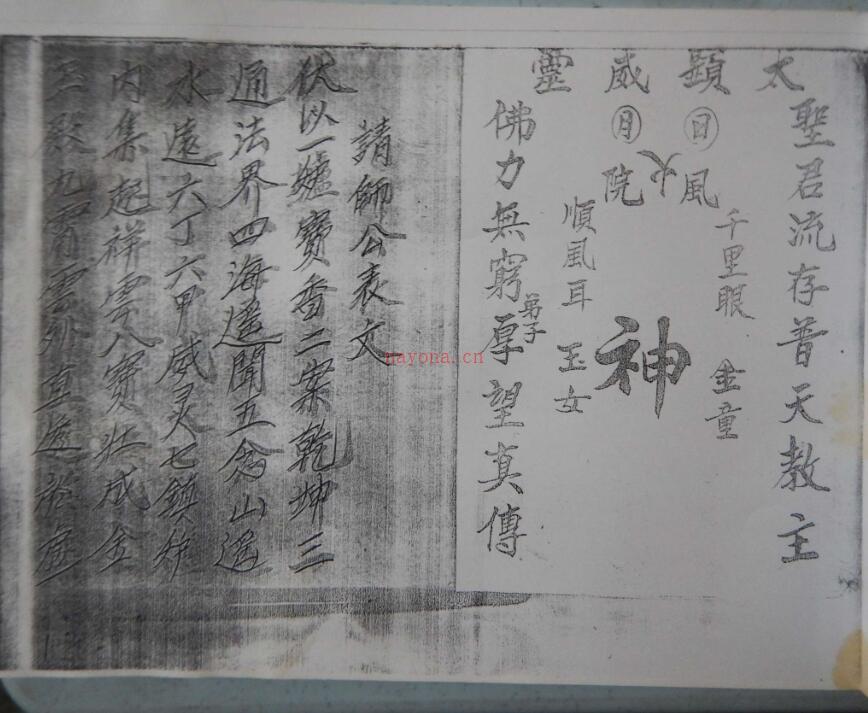 太顕威靈
聖君流存普天教主
千里眼 金童
日風
火
神
月院
順風耳 玉女
弟子
佛力無窮厚望真傳
請師公表文
伏以一爐寶香二案乾坤三
通法界四海遥聞五念山遥
水遠六丁六甲威灵七鎮炉
内集起祥雲八寶壮成金
九霄雲外直透於庭
nayona.cn